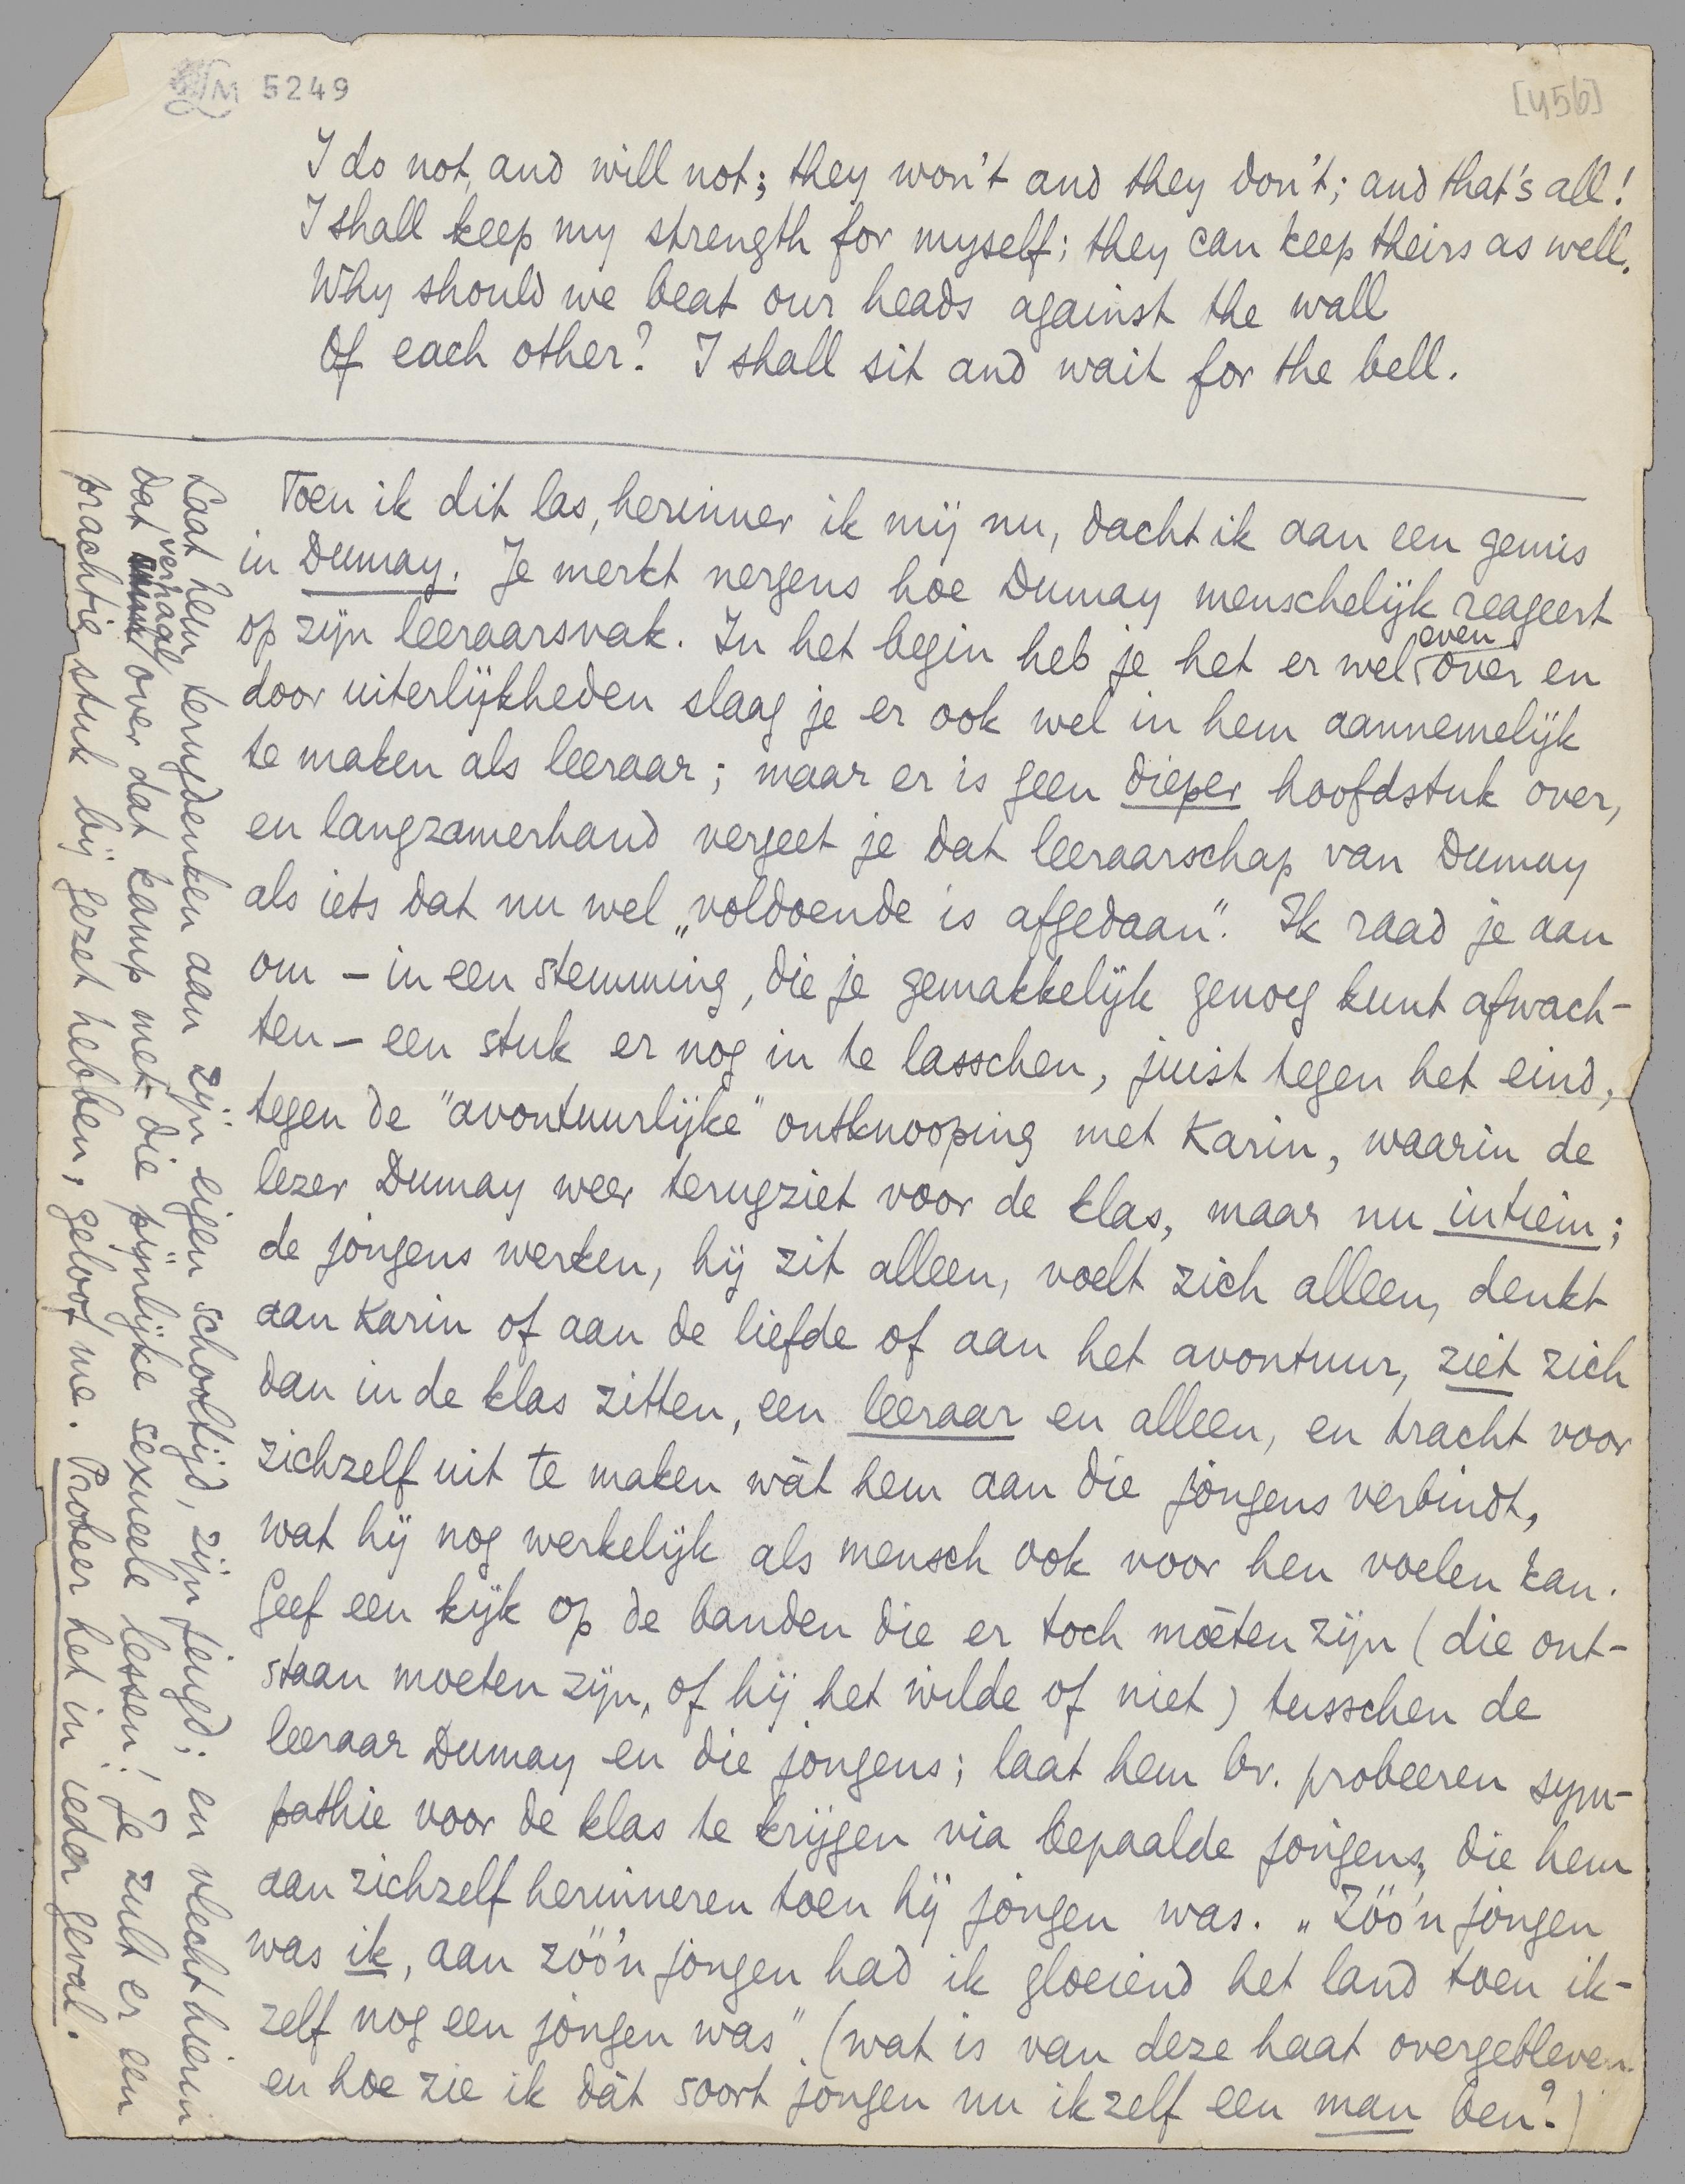 LM 5249
[456]
I do not, and will not; they won't and they don't; and that's all!
I shall keep my strength for myself; they can keep theirs as well.
Why should we beat our heads against the wall
Of each other? I shall sit and wait for the bell.
Toen ik dit las, herinner ik mij nu, dacht ik aan een gemis
in Dumay. Je merkt nergens hoe Dumay menschelijk reageert
op zijn leeraarsvak. In het begin heb je het er wel even over en
door uiterlijkheden slaag je er ook wel in hem aannemelijk
te maken als leeraar; maar er is geen dieper hoofdstuk over,
en langzamerhand vergeet je dat leeraarschap van Dumay
als iets dat nu wel „voldoende is afgedaan". Ik raad je aan
om – in een stemming, die je gemakkelijk genoeg kunt afwach-
ten – een stuk er nog in te lasschen, juist tegen het eind,
tegen de "avontuurlijke" ontknooping met Karin, waarin de
lezer Dumay weer terugziet voor de klas, maar nu intiem;
de jongens werken, hij zit alleen, voelt zich alleen, denkt
aan Karin of aan de liefde of aan het avontuur, ziet zich
dan in de klas zitten, een leeraar en alleen, en tracht voor
zichzelf uit te maken wàt hem aan die jongens verbindt,
wat hij nog werkelijk als mensch ook voor hen voelen kan.
Geef een kijk op de banden die er toch móeten zijn (die ont-
staan moeten zijn, of hij het wilde of niet) tusschen de
leeraar Dumay en die jongens; laat hem bv. probeeren sym-
pathie voor de klas te krijgen via bepaalde jongens, die hem
aan zichzelf herinneren toen hij jongen was. „Zóó'n jongen
was ik, aan zóó'n jongen had ik gloeiend het land toen ik-
zelf nog een jongen was". (wat is van deze haat overgebleven
en hoe zie ik dàt soort jongen nu ikzelf een man ben?)
Laat hem terugdenken aan zijn eigen schooltijd, zijn jeugd; en vlecht hierin
dat verhaal over dat kamp met die pijnlijke sexueele lessen! Je zult er een
prachtig stuk bij gezet hebben, geloof me. Probeer het in ieder geval.